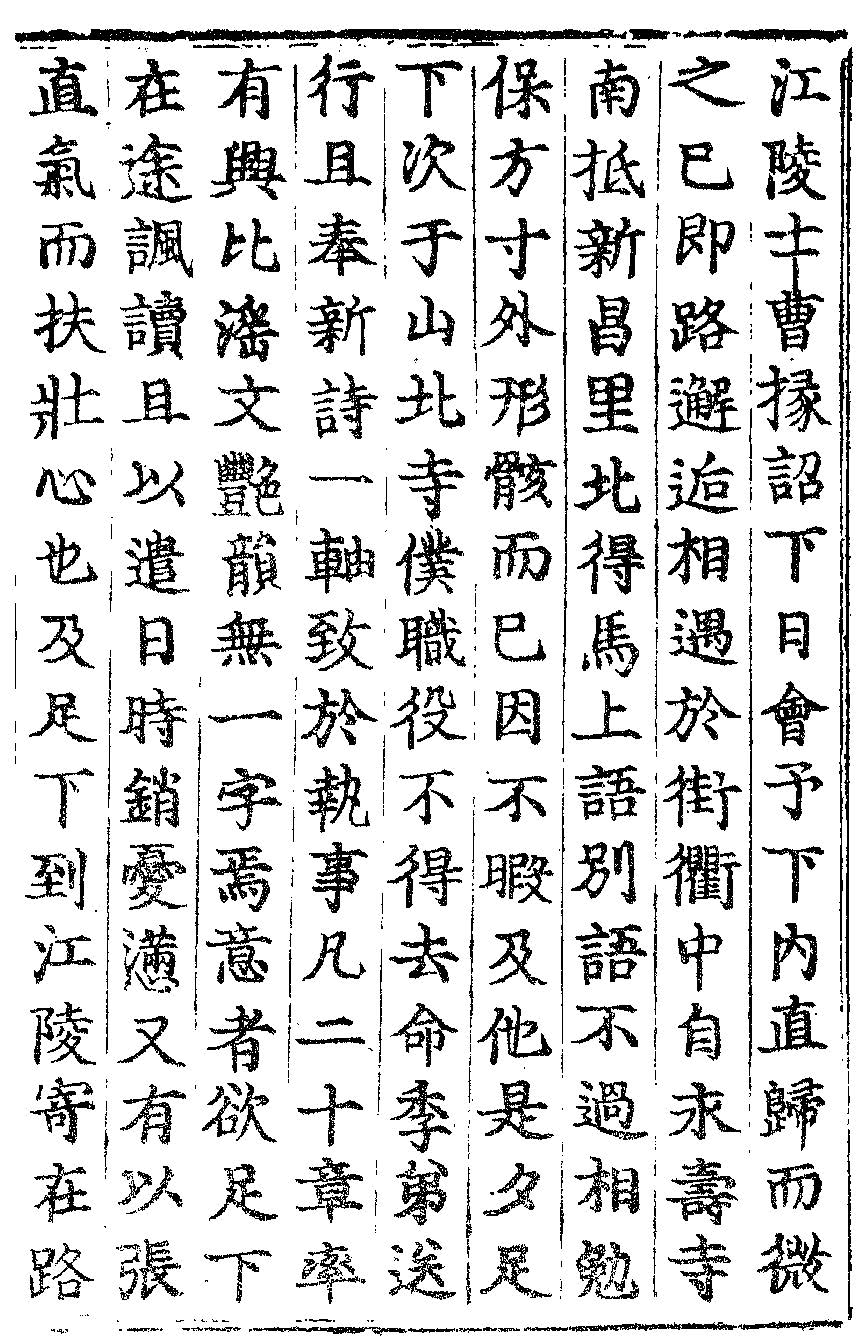 江陵士曹掾詔下日會予下內直歸而微
之已即路邂逅相遇於街衢中自永壽寺
南抵新昌里北得馬上語別語不過相勉
保方寸外形骸而已因不暇及他是夕足
下次于山北寺僕職役不得去命季弟送
行且奉新詩一軸致於執事凡二十章率
有興比滛文豔韻無一字焉意者欲足下
在途諷讀且以遣日時銷憂懣又有以張
直氣而扶壯心也及足下到江陵寄在路